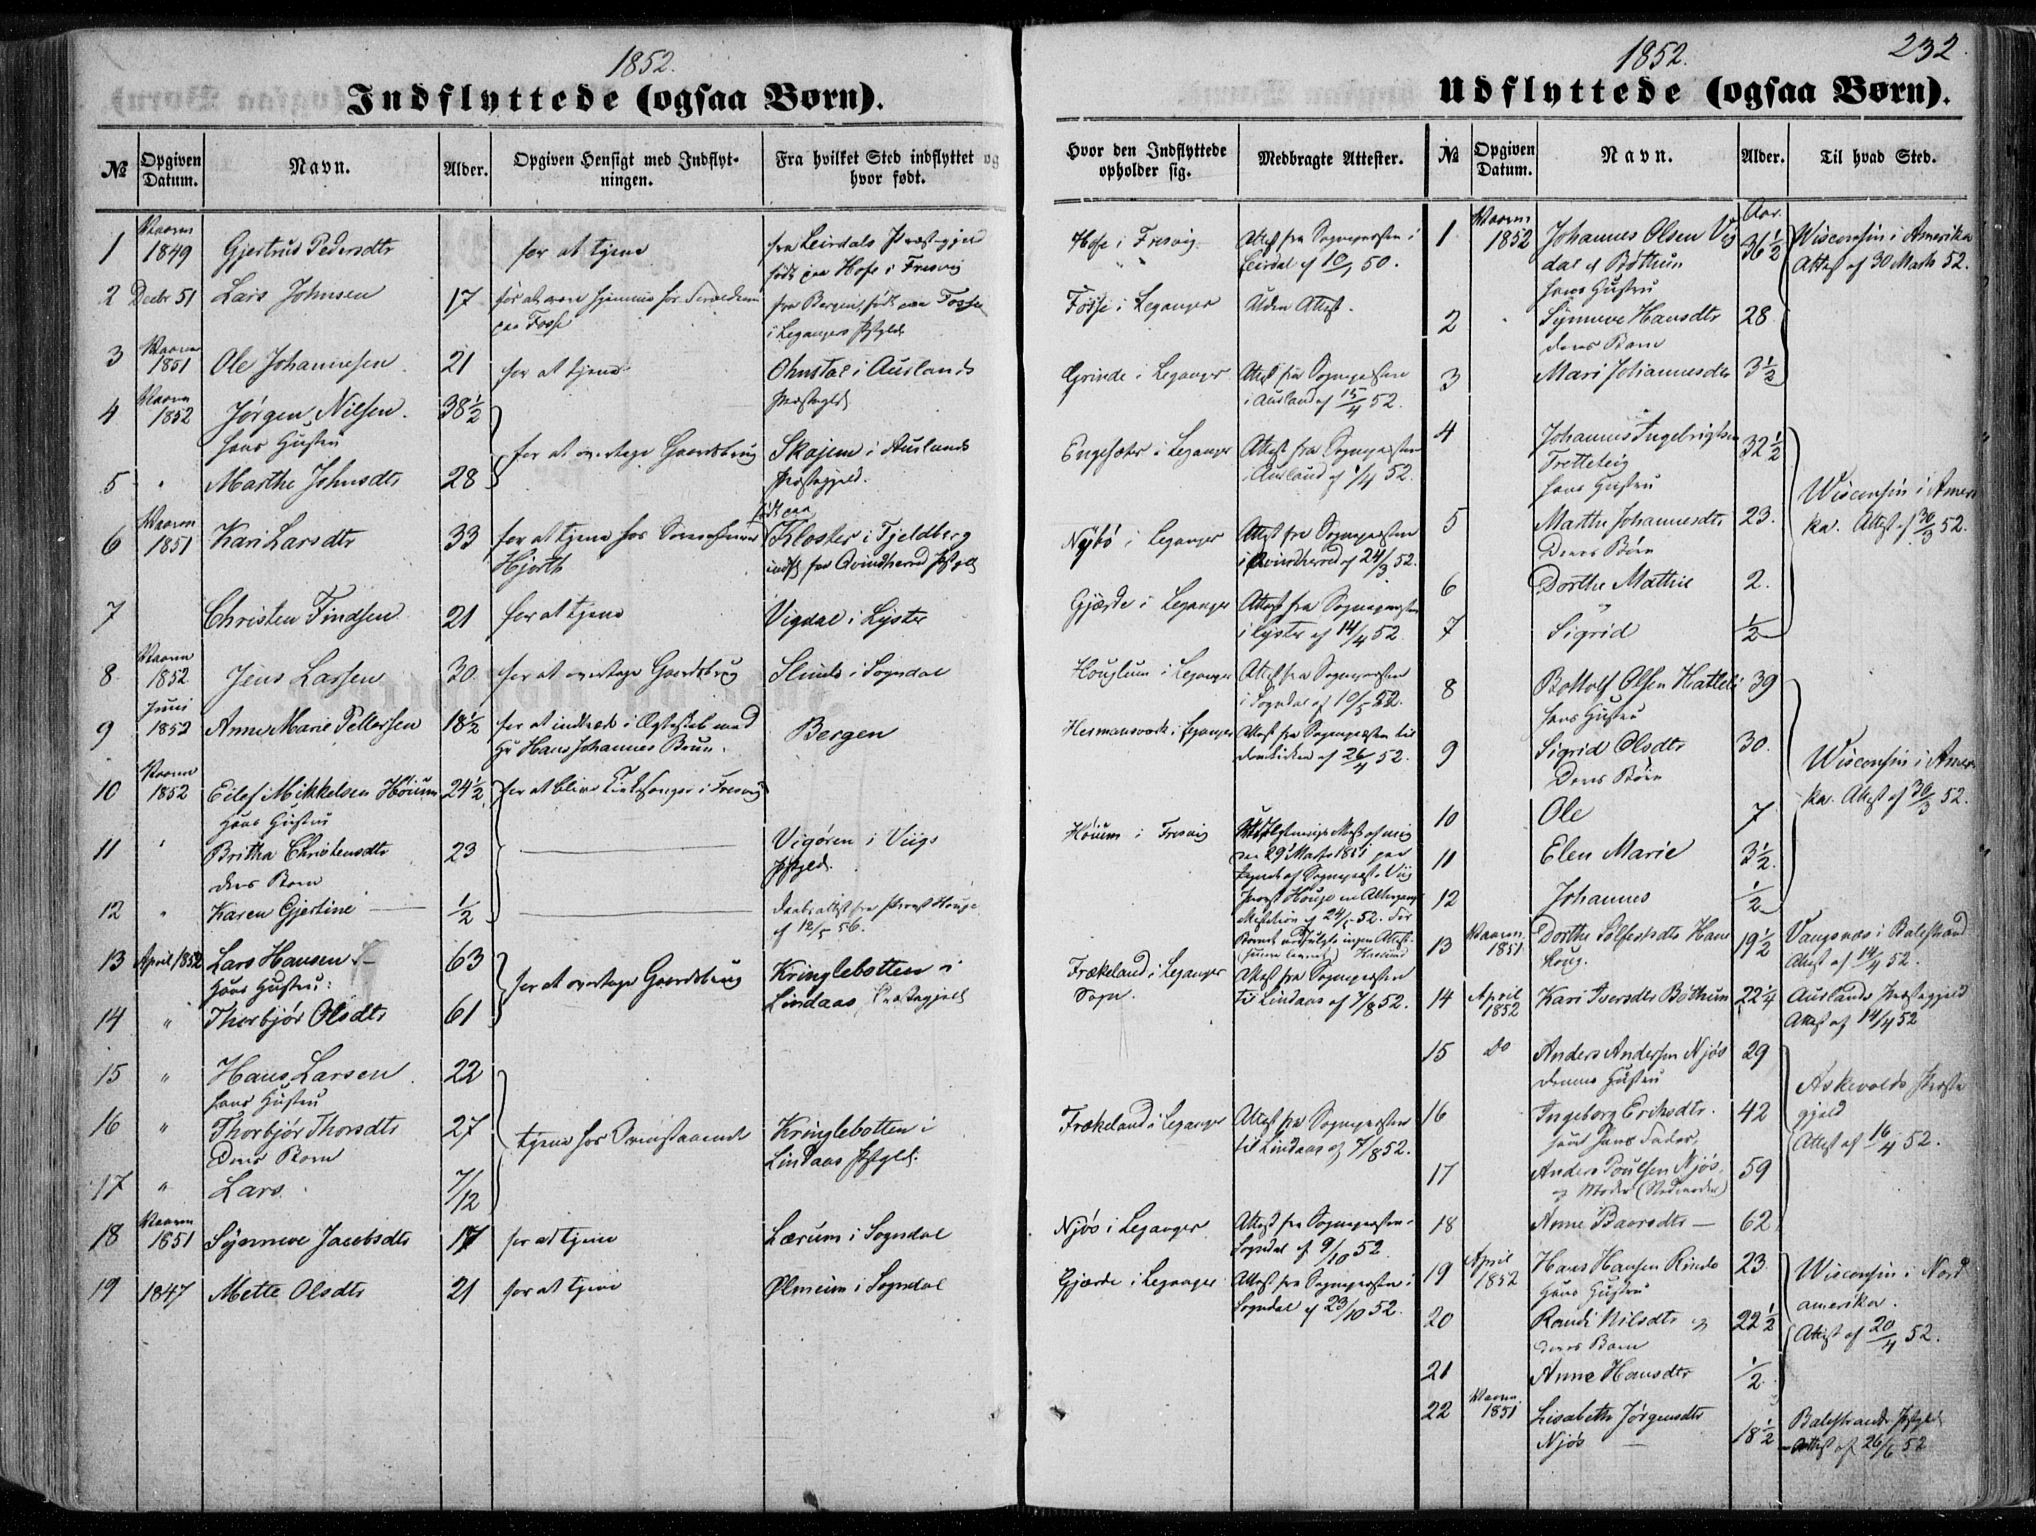 1852.
Indflyttede (ogsaa Børn).
№
Opgiven Datum.
Navn.
Alder.
Opgiven Hensigt med Indflytningen.
Fra hvilket Sted indflyttet og hvor født.
1 Vaaren 1849 Gjertrud Pedersdtr for at tjene fra Leirdals Præstegjeld
født paa Hofe i Fresvig
2 Decbr 51 Lars Johnsen 17 for at være hjemme hos Forældrene fra Bergen, født paa Fosse
paa Fosse i Leganger Pstgjeld
3 Vaaren 1851 Ole Johannesen 21 for at tjene Ohnstad i Aurlands
Præstegjeld
4 Vaaren 1852 Jørgen Nilsen. 38½
hans Hustru for at overtage Gaardsbrug Skajem i Aurlands
5 " Marthe Johnsdtr 28 Præstegjeld.
født paa
6 Vaaren 1851 Kari Larsdtr 33 for at tjene hos Kloster i Fjeldberg
Hjorth indfl. fra Qvindherred Pstgjeld
7 Christen Findsen 21 for at tjene Vigdal i Lyster
8 Vaaren 1852 Jens Larsen 30 for at overtage Gaardsbrug i Sogndal
9 Juni 1852 Anne Marie Pettersen 18½ for at indtræde i Ægteskab med Bergen
Hr Hans Johannes Brun.
10 Vaaren 1852 Eilef Mikkelsen Høium 24½ for at blive Kirkesanger i Fresvig
hans Hustru
11 " Britha Christensdtr 23 Vigøren i Viigs
deres Barn Pstgjeld.
12 " Karen Gjertine ½ Daabsattest fra Provst Houge
af 12/5 56.
13 April 1852 Lars Hansen 63 for at overtage Gaardsbrug Kringlebotten i
hans Hustru: Lindaas Præstegjeld
14 " Thorbjør Olsdtr 61
15 " Hans Larsen 22
hans Hustru
16 " Thorbjør Thorsdtr 27 tjene hos Ovenstaaende Kringlebotten i
Deres Barn Lindaas Pstgjeld.
17 " Lars. 7/12
18 Vaaren 1851 Synneve Jacobsdtr 17 for at tjene Lærum i Sogndal
19 1847 Mette Olsdtr 21 for at tjene Ølmeim i Sogndal
1852.
232.
Udflyttede (ogsaa Børn).
Hvor den Indflyttede opholder sig.
Medbragte Attester.
№
Opgiven Datum.
Navn.
Alder.
Til hvad Sted.
Hofe i Fresvig Attest fra Sognepræsten i
Leirdal af 10/1 50.
Fosse i Leganger Uden Attest.
Grinde i Leganger Attest fra Sognepræsten
i Aurland af 15/4 52.
Engesæter i Leganger Attest fra Sognepræsten
i Aurland af 1/4 52.
Nybø i Leganger Attest fra Sognepræsten
i Qvindherred af 24/3 52.
Gjærde i Leganger Attest fra Sognepræsten
i Lyster af 14/4 52.
Houglum i Leganger Attest fra Sognepræsten
i Sogndal af 10/5 52.
Hermansværk i Leganger Attest fra Sognepræsten til
Domkirken af 26/4 52.
Høium i Fresvig Udflytnings Attest af mig
den 29de Marts 1851
Frækeland i Leganger Attest fra Sognepræsten
Sogn. til Lindaas af 7/8 52.
Frækeland i Leganger Attest fra Sognepræsten
til Lindaas af 7/8 52.
Njøs i Leganger Attest fra Sognepræsten i
Sogndal af 9/10 52.
Gjærde i Leganger Attest fra Sognepræsten i
Sogndal af 23/10 52.
Aar.
1 Vaaren 1852 Johannes Olsen 36½ Wisconsin i Amerika
dal af Bøthun Attest af 30 Marts 52.
hans Hustru
2 " Synneve Hansdtr 28
deres Barn
3 Mari Johannesdtr 3½
4 Johannes Ingebrigtsen 32½
Tretteteig
hans Hustru Wisconsin i Ameri
5 Marthe Johannesdtr 23. ka. Attest af 30/3 52.
Deres Børn
6 Dorthe Mathie 2.
7 Sigrid ½
8 Bottolf Olsen Hatteli 39
hans Hustru
9 Sigrid Olsdtr 30. Wisconsin i Ameri
Deres Børn ka. Attest af 30/3 52.
10 Ole 7
11 Elen Marie 3½
12 Johannes ½
13 Vaaren 1851 Dorthe Hans 19½ Vangsnæs i Balestrand
houg. Attest af 14/4 52.
14 April 1852 Kari Iversdtr Bøthun 22¼ Aurlands Præstegjeld
Attest af 14/4 52
15 Do Anders Andersen Njøs 29
dennes Hustru Askevolds Præste
16 Ingeborg Eriksdtr. 42 gjeld
samt hans Fader, Attest af 16/4 52.
17 Anders Poulsen Njøs, 59
og Moder (Stedmoder)
18 Anne Baarsdtr 62
19 April 1852 Hans Hansen Rinde 23. Wisconsin i Nord
hans Hustru amerika.
20 Randi Nilsdtr og 22½ Attest af 20/4 52.
deres Barn
21 Anne Hansdtr ½
22 Vaaren 1851 Lisabeth Jørgensdtr 18½ Balestrands Pstgjeld
Njøs Attest af 26/6 52